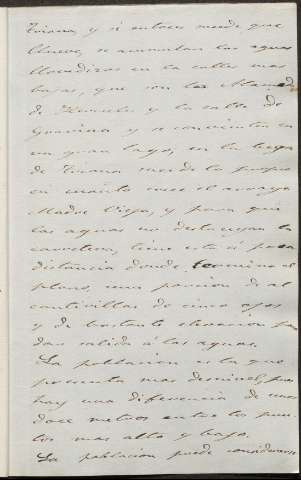 Triana, y si entonces sucede que
llueve, se acumulan las aguas
llovedizas en las calles mas
bajas, que son las Alameda
de Hercules y la calle de
Gravina y se convierten en
un gran lago, en la vega
de Triana sucede lo propio
en cuanto crece el arroyo
Madre Vieja, y para que
las aguas no destruyan la
carretera, tiene esta á poca
distancia donde termina el
plano, una porcion de al
cantarillas de cinco ojos
y de bastante elevacion pa
dar salida á las aguas.
La poblacion es la que
presenta mas desnivel, pues
hay una diferencia de unos
doce metros entre los pun
tos mas alto y bajo.
La poblacion puede considerarse